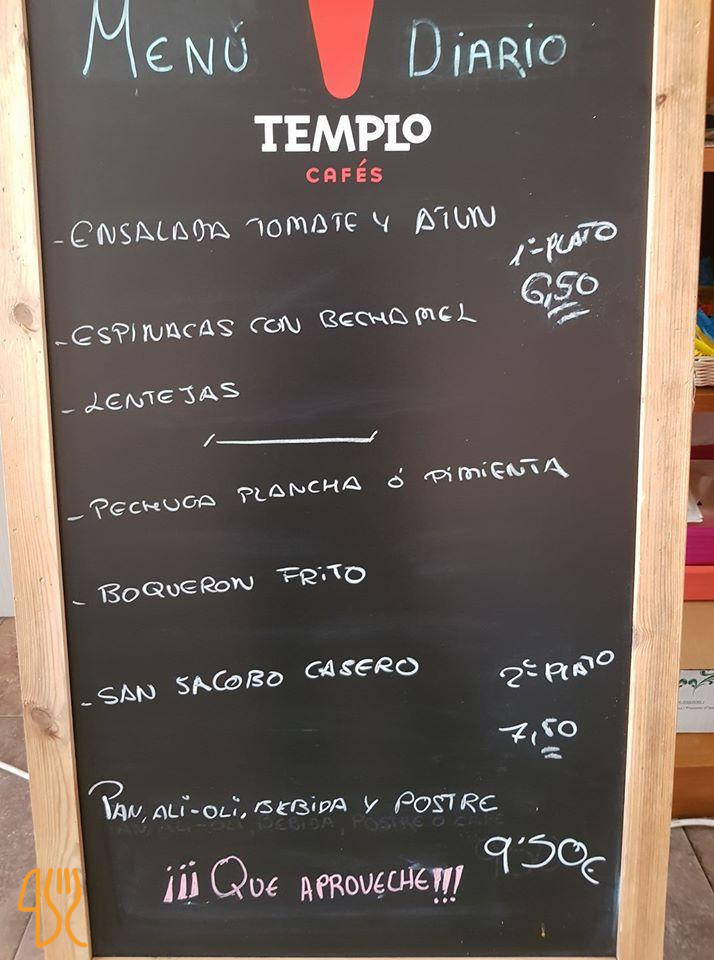 MENÚ DIARIO
TEMPLO
CAFÉS
- ENSALADA TOMATE Y ATUN
1º PLATO
6,50
- ESPINACAS CON BECHAMEL
- LENTEJAS
- PECHUGA PLANCHA Ó PIMIENTA
- BOQUERON FRITO
- SAN JACOBO CASERO
2º PLATO
7,50
PAN, ALI-OLI, BEBIDA Y POSTRE
9'50€
¡¡¡QUE APROVECHE!!!